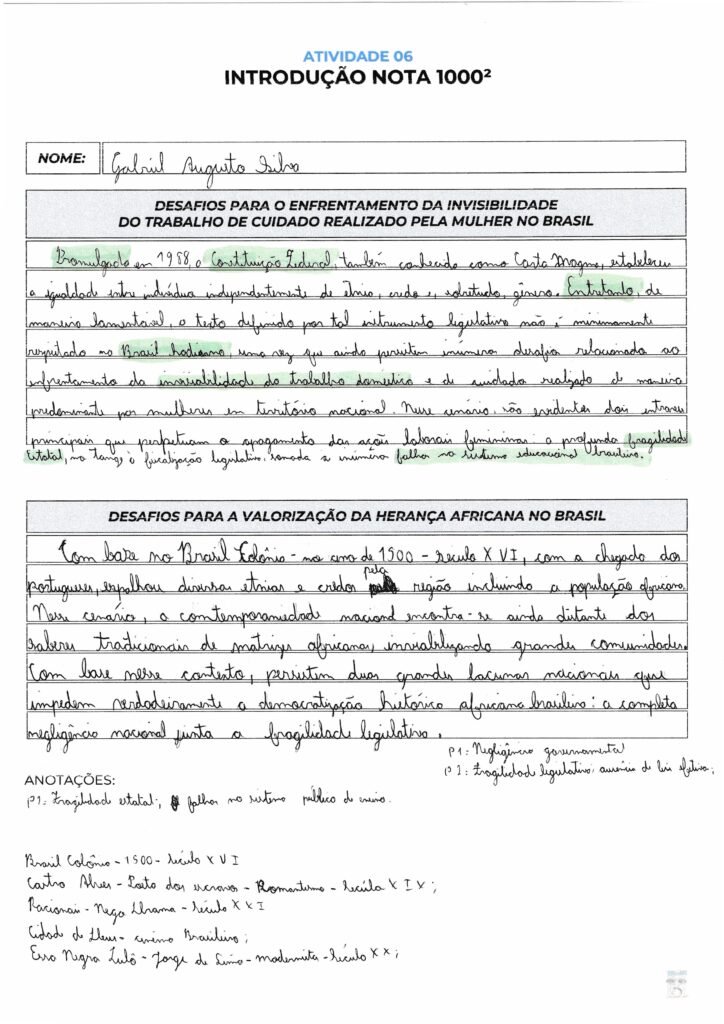 ATIVIDADE 06
INTRODUÇÃO NOTA 1000²
NOME: Gabriel Augusto Silva
DESAFIOS PARA O ENFRENTAMENTO DA INVISIBILIDADE
DO TRABALHO DE CUIDADO REALIZADO PELA MULHER NO BRASIL
Promulgada em 1988, a Constituição Federal, também conhecida como Carta Magna, estabeleceu
a igualdade entre indivíduos independentemente de etnia, credo e, sobretudo, gênero. Entretanto, de
maneira lamentável, o texto definido por tal instrumento legislativo não é minimamente
respeitado no Brasil hodierno, uma vez que ainda persistem inúmeros desafios relacionados ao
enfrentamento da invisibilidade do trabalho doméstico e de cuidado realizado de maneira
predominante por mulheres em território nacional. Nesse cenário, são evidentes dois entraves
principais que perpetuam o apagamento das ações laborais femininas: a profunda fragilidade
Estatal, no tange à fiscalização legislativa, somada a inúmeras falhas no sistema educacional brasileiro.
DESAFIOS PARA A VALORIZAÇÃO DA HERANÇA AFRICANA NO BRASIL
Com base no Brasil Colônia - no ano de 1500 - século XVI, com a chegada dos
portugueses, espalhou diversas etnias e credos pela região incluindo a população africana.
Nesse cenário, a comtemporaneidade nacional encontra-se ainda distante dos
saberes tradicionais de matrizes africanas, inviabilizando grandes comunidades.
Com base nesse contexto, persistem duas grandes lacunas nacionais que
impedem verdadeiramente a democratização histórica africana brasileira: a completa
negligência nacional junta a fragilidade legislativa.
P1: Negligência governamental
P2: Fragilidade legislativa; ausência de leis efetivas;
ANOTAÇÕES:
P1: Fragilidad estatal; falhas no sistema público de ensino.
Brasil Colônia - 1500 - século XVI
Castro Alves - Poeta dos escravos - Romantismo - século XIX;
Racionais - Nego Drama - século XXI
Cidade de Deus - cinema Brasileiro;
Essa Negra Fulô - Jorge de Lima - modernista - século XX;